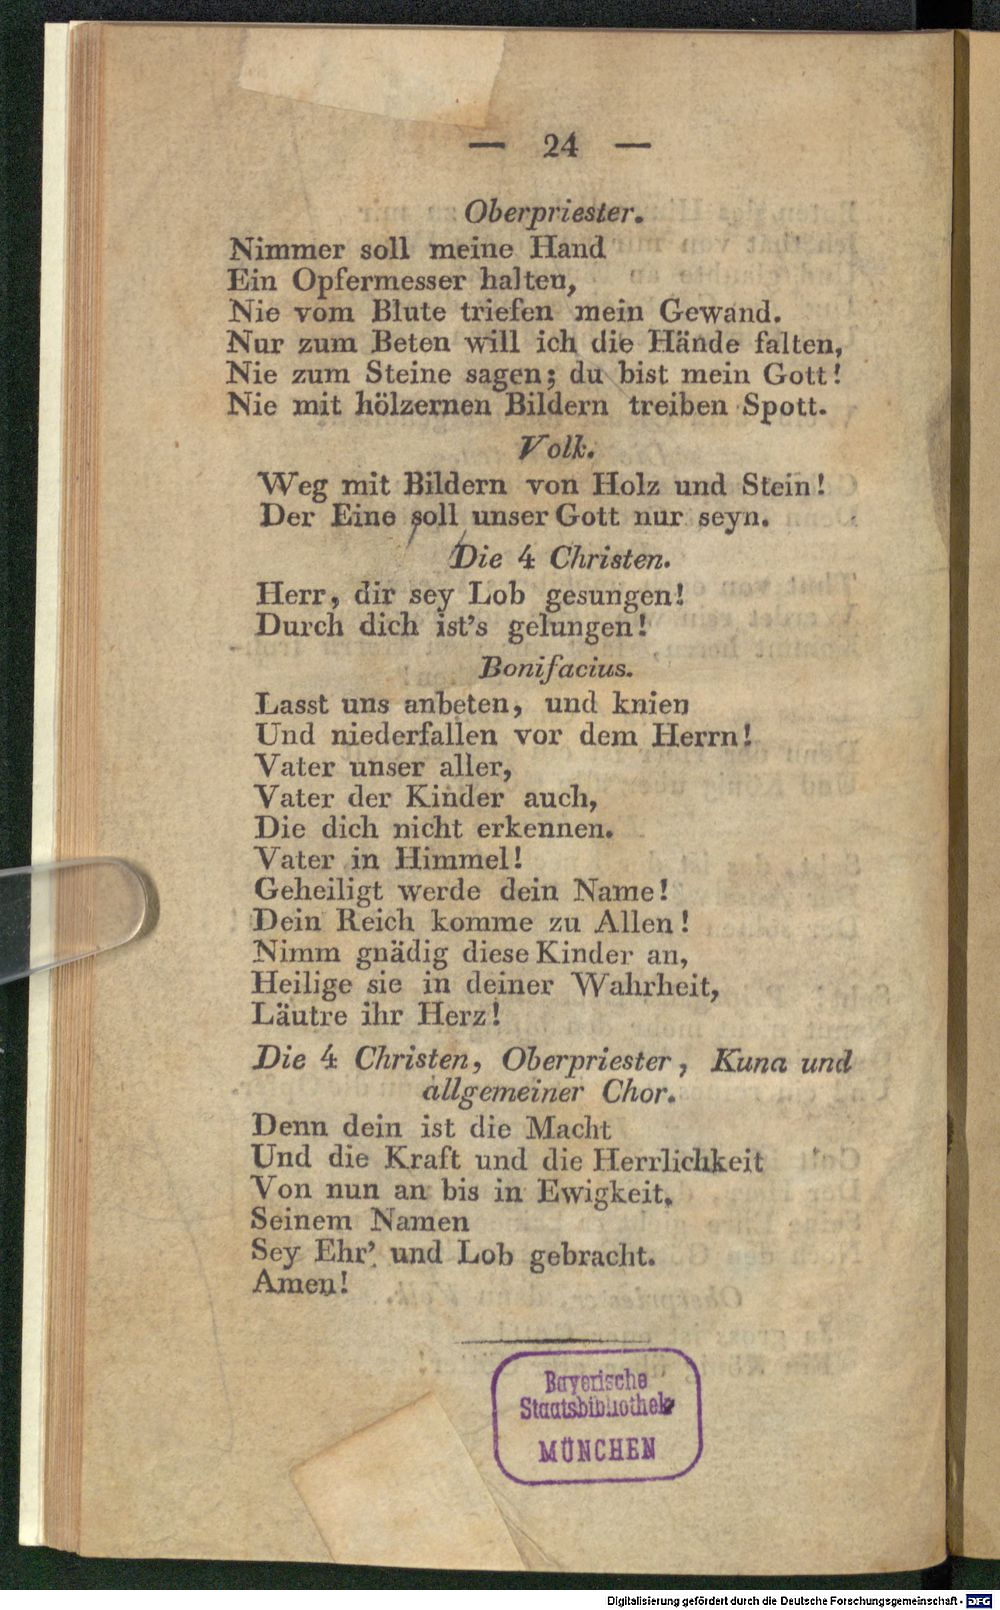 — 24 —
Oberpriester.
Nimmer soll meine Hand
Ein Opfermesser halten,
Nie vom Blute triefen mein Gewand.
Nur zum Beten will ich die Hände falten,
Nie zum Steine sagen; du bist mein Gott!
Nie mit hölzernen Bildern treiben Spott.
Volk.
Weg mit Bildern von Holz und Stein!
Der Eine soll unser Gott nur seyn.
Die 4 Christen.
Herr, dir sey Lob gesungen!
Durch dich ist's gelungen!
Bonifacius.
Lasst uns anbeten, und knien
Und niederfallen vor dem Herrn!
Vater unser aller,
Vater der Kinder auch,
Die dich nicht erkennen.
Vater in Himmel!
Geheiligt werde dein Name!
Dein Reich komme zu Allen!
Nimm gnädig diese Kinder an,
Heilige sie in deiner Wahrheit,
Läutre ihr Herz!
Die 4 Christen, Oberpriester, Kuna und
allgemeiner Chor.
Denn dein ist die Macht
Und die Kraft und die Herrlichkeit
Von nun an bis in Ewigkeit.
Seinem Namen
Sey Ehr' und Lob gebracht.
Amen!
Bayerische
Staatsbibliothek
MÜNCHEN
Digitalisierung gefördert durch die Deutsche Forschungsgemeinschaft - DFG